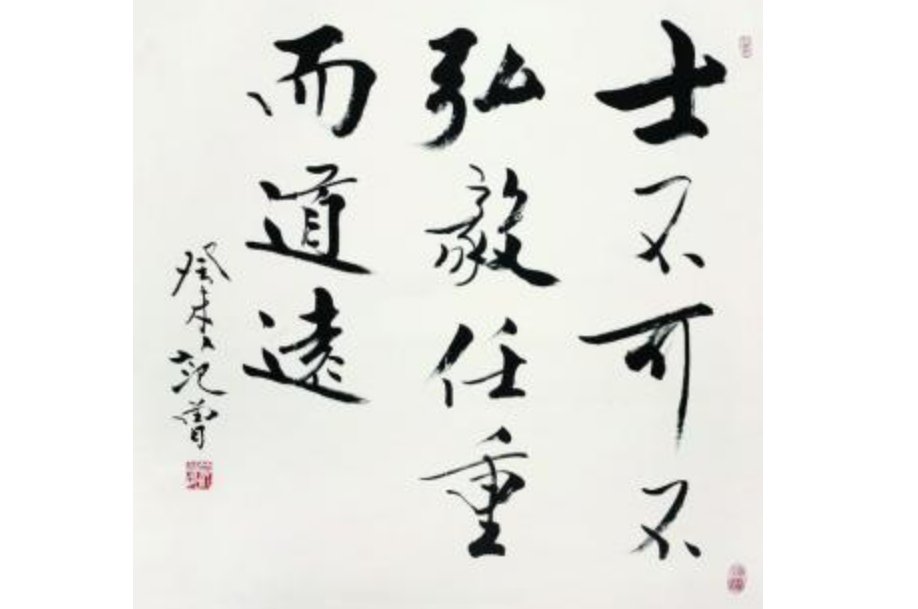 士不可不
弘毅任重
而道遠
癸未范曾